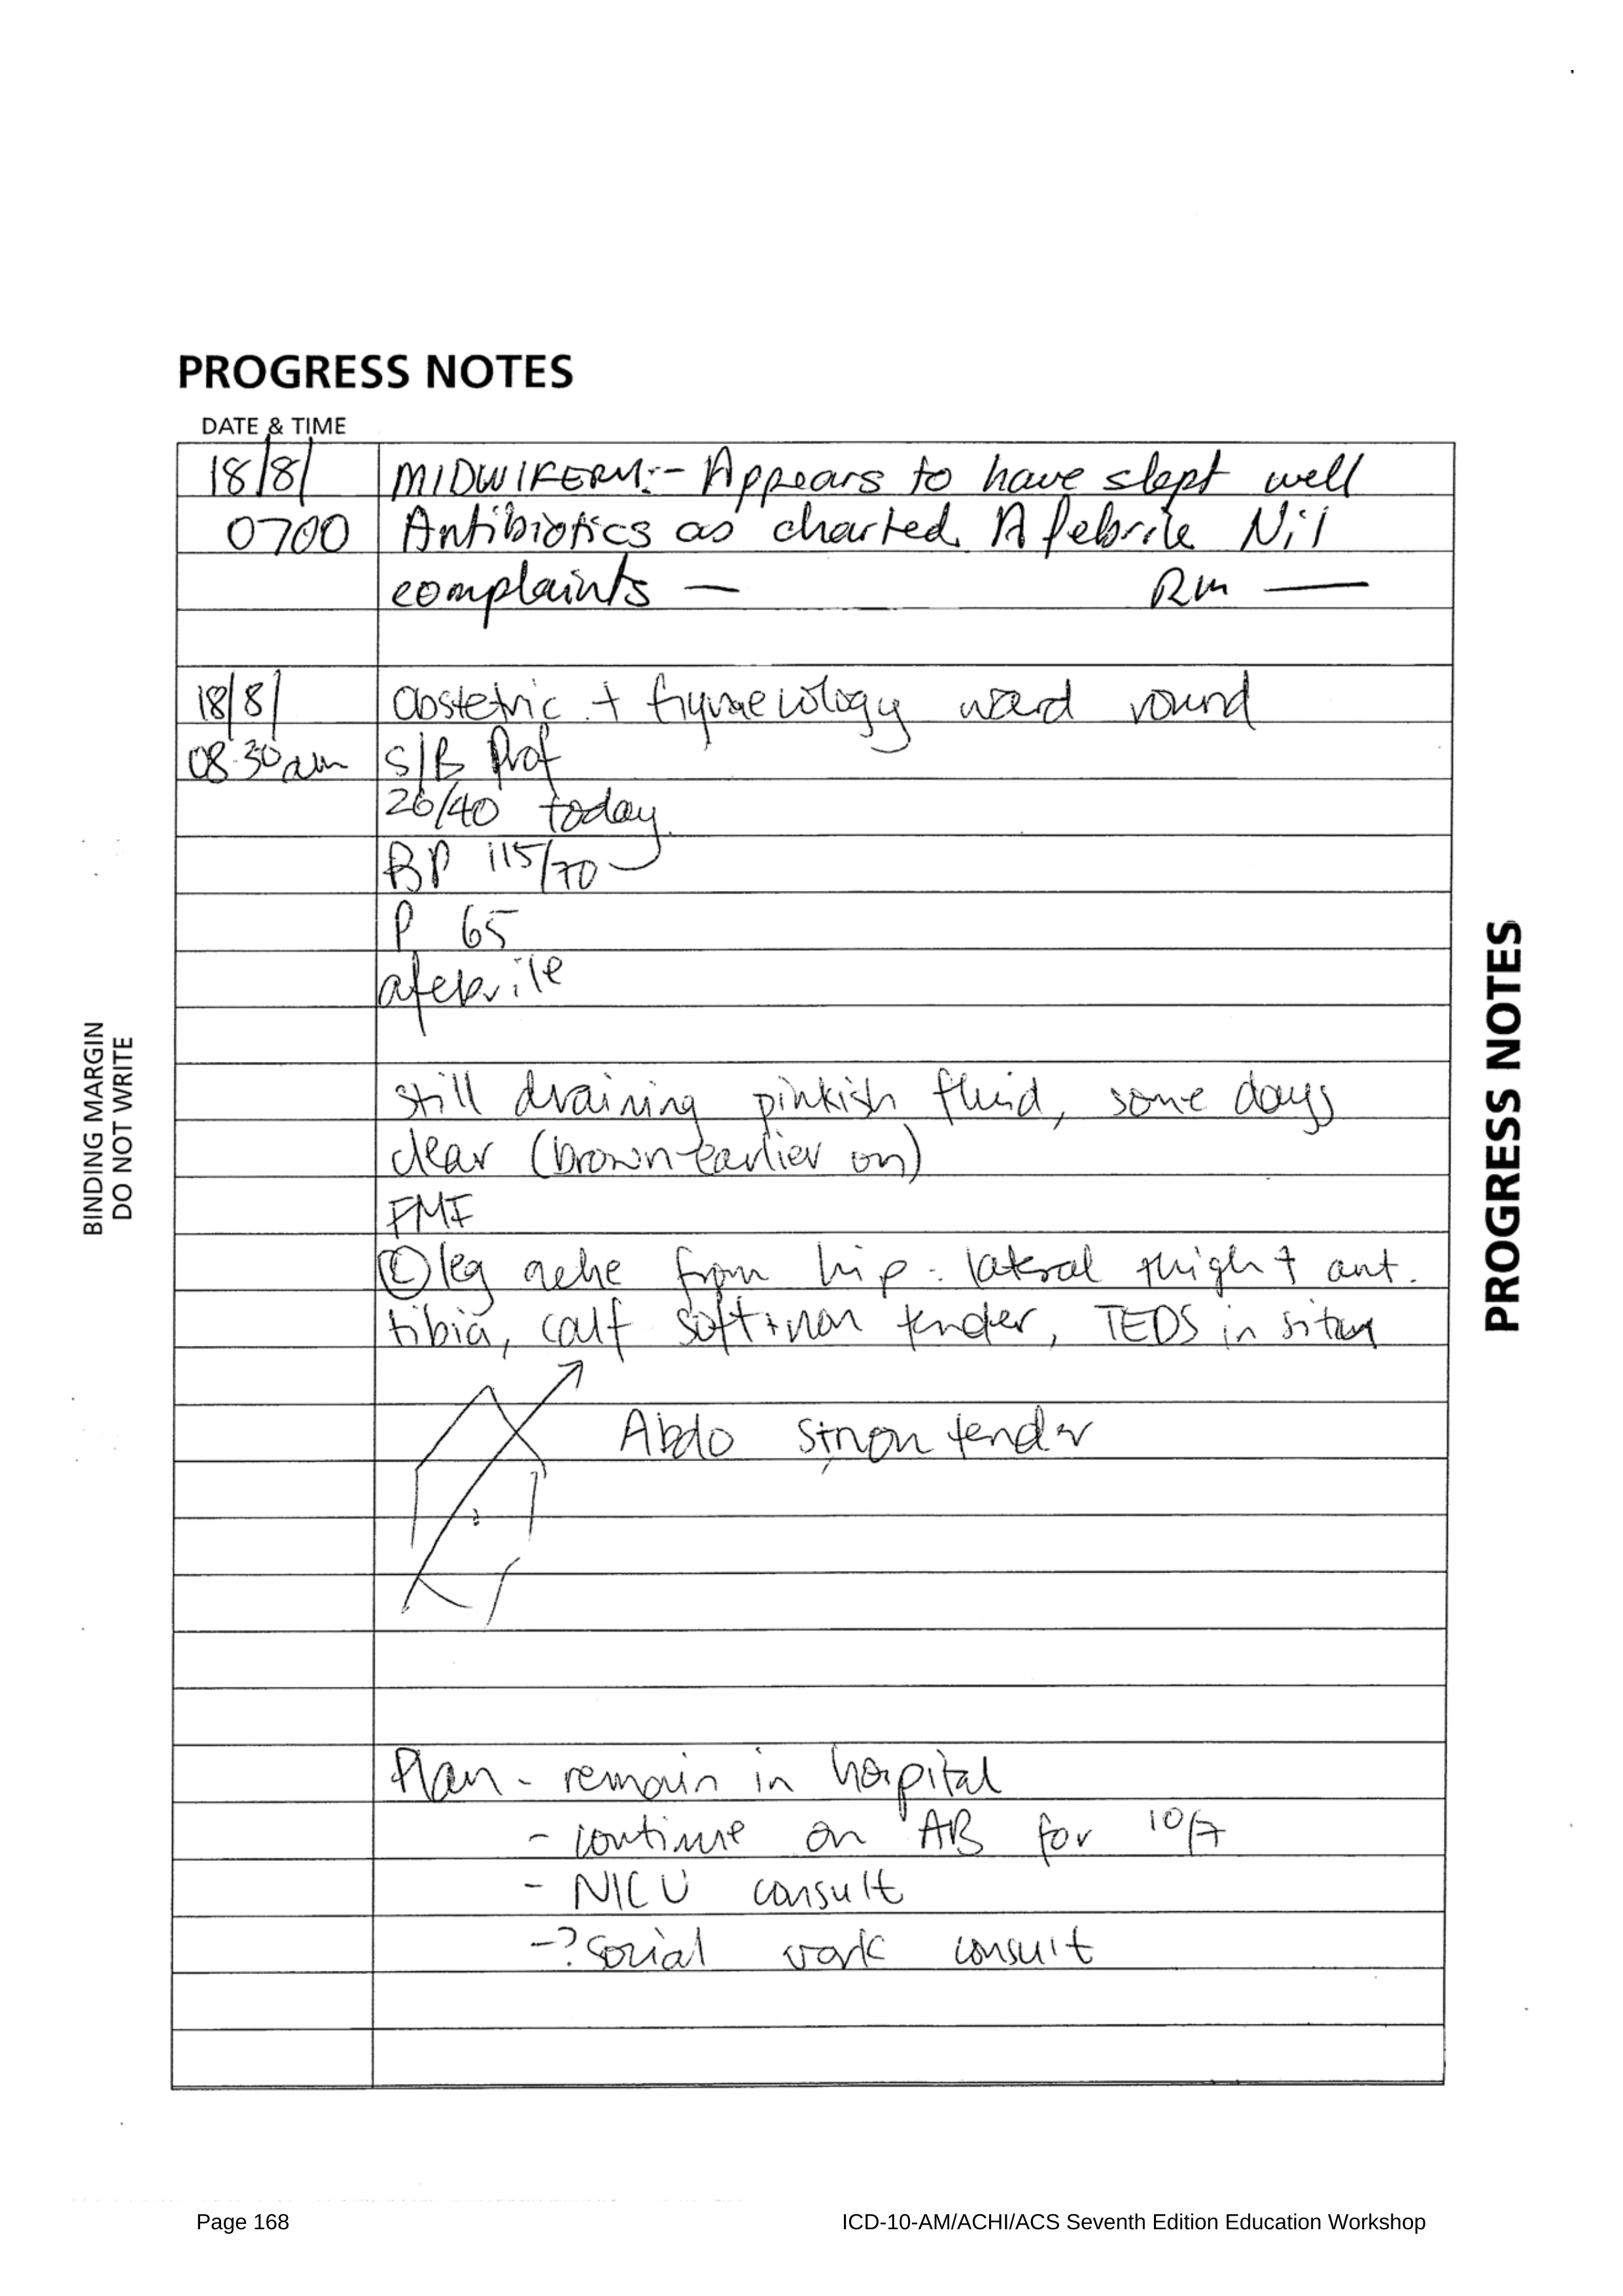 PROGRESS NOTES
DATE & TIME
18/8/ MIDWIFERY:- Appears to have slept well
0700 Antibiotics as charted. Afebrile Nil
complaints — RM —
18/8/ Obstetric + Gynaecology ward round
08.30am S/B Prof
26/40 today
BP 115/70
P 65
afebrile
still draining pinkish fluid, some days
clear (brown earlier on)
FMF
(L) leg ache from hip - lateral thigh + ant.
tibia, calf soft + non tender, TEDS in situ
Abdo S, non tender
Plan - remain in hospital
- continue on AB for 10/7
- NICU consult
- ? social work consult
BINDING MARGIN
DO NOT WRITE
PROGRESS NOTES
Page 168 ICD-10-AM/ACHI/ACS Seventh Edition Education Workshop